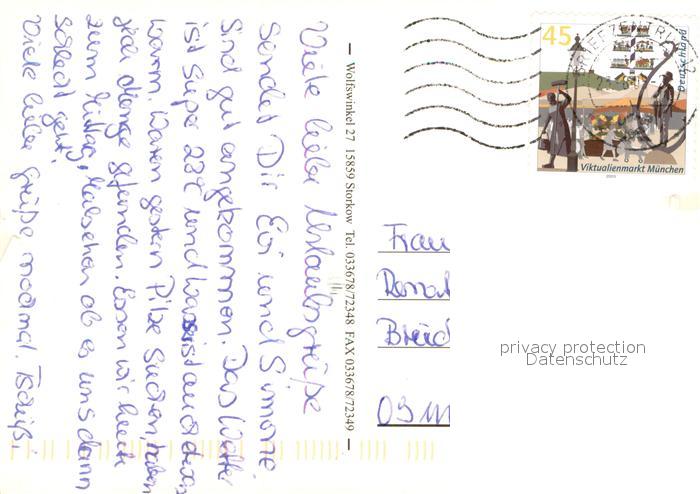 Viele liebe Urlaubsgrüße
sendet Dir Evi und Simone.
Sind gut angekommen. Das Wetter
ist super 28°C und Wasser ist auch etwas
warm. Waren gestern Pilze suchen, haben
jede Menge gefunden. Essen wir heute
zum Mittag, Malsehen ob es uns dann
schlecht geht.
Viele liebe Grüße nochmal. Tschüß!
— Wolfswinkel 27 15859 Storkow Tel. 033678/72348 FAX 033678/72349 —
45
Deutschland
Viktualienmarkt München
2003
BRIEFZENTRUM
Frau
Renat
Breid
09111
privacy protection
Datenschutz